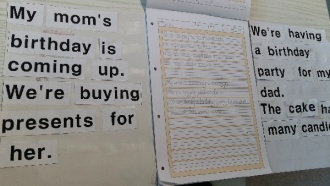 My mom's
birthday is
coming up.
We're buying
presents for
her.
We're having
a birthday
party for my
dad.
The cake ha
many candle